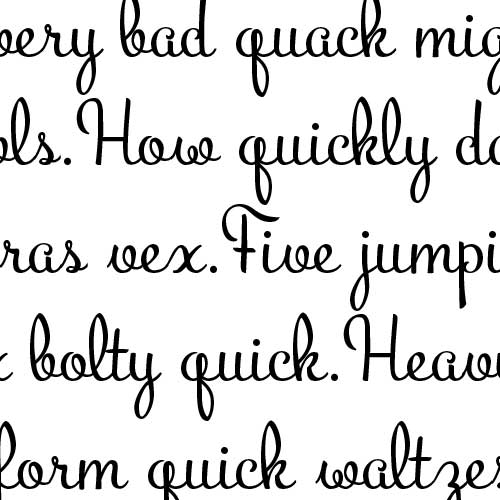 very bad quack mig
ols. How quickly da
ras vex. Five jumpi
x bolty quick. Heavy
form quick waltzes